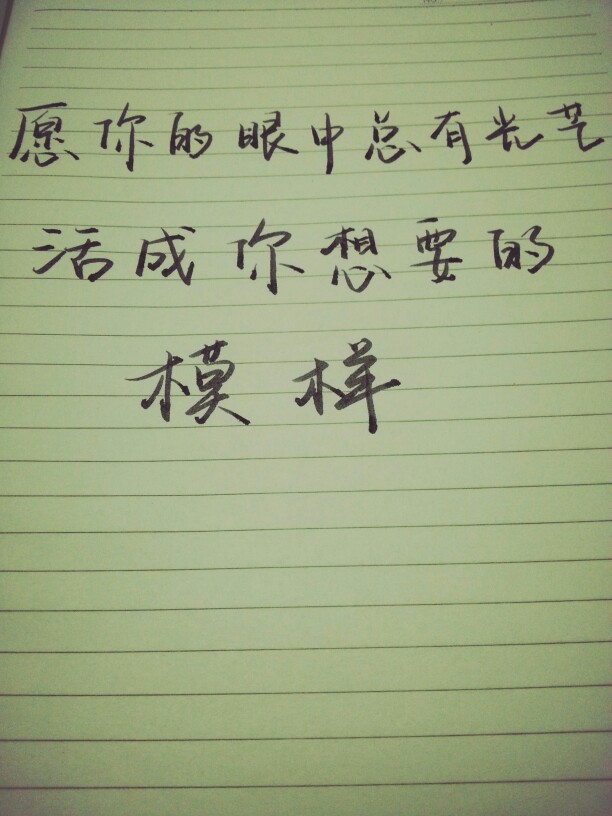 愿你的眼中总有光芒
活成你想要的
模样